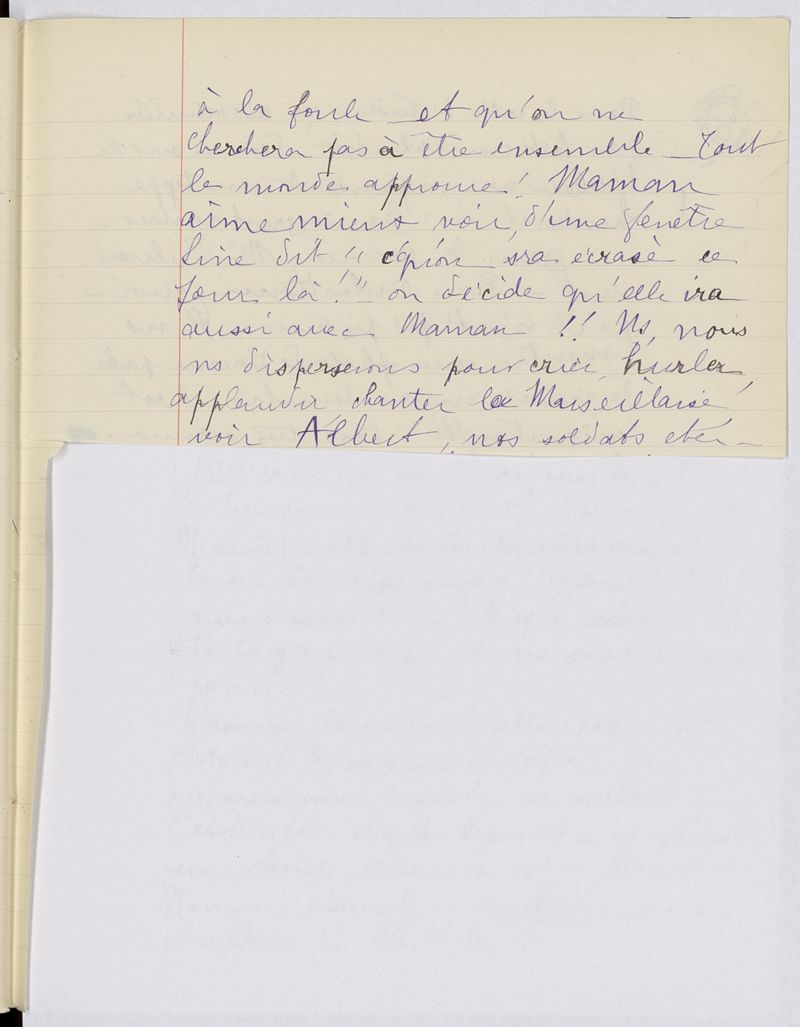 à la foule et qu'on ne
cherchera pas à être ensemble _ Tout
le monde approuve ! Maman
aime mieux voir d'une fenêtre
Line dit " qu'on sra écrasé ce
jour là ! " on décide qu'elle ira
aussi avec Maman !! Ns, nous
ns disperserons pour crier, hurler,
applaudir, chanter la Marseillaise,
voir Albert, nos soldats etc. _